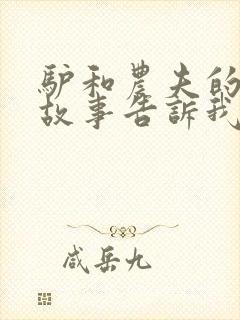 驴和農夫的
故事告訴我
咸岳九